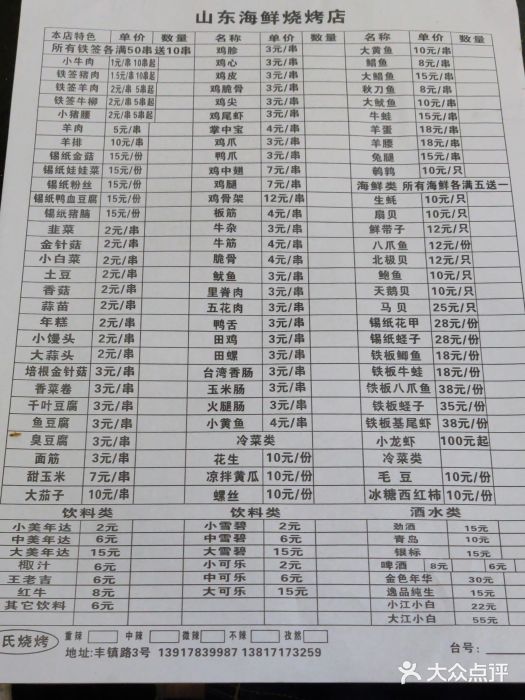 山东海鲜烧烤店
本店特色 单价 数量 名称 单价 数量 名称 单价 数量
所有铁签各满50串送10串 鸡胗 3元/串 大黄鱼 10元/串
小牛肉 1元/串 10串起 鸡心 3元/串 鲳鱼 8元/串
铁签猪肉 1.5元/串 10串起 鸡皮 3元/串 大鲳鱼 15元/串
铁签羊肉 2元/串 5串起 鸡脆骨 3元/串 秋刀鱼 8元/串
铁签牛柳 2元/串 5串起 鸡尖 3元/串 大鱿鱼 10元/串
小猪腰 2元/串 5串起 鸡尾虾 3元/串 牛蛙 15元/串
羊肉 5元/串 掌中宝 4元/串 羊蛋 18元/串
羊排 10元/串 鸡爪 3元/串 羊腰 18元/串
锡纸金菇 15元/份 鸭爪 3元/串 兔腿 15元/串
锡纸娃娃菜 15元/份 鸡中翅 7元/串 鹌鹑 10元/串
锡纸粉丝 15元/份 鸡腿 7元/串 海鲜类 所有海鲜各满五送一
锡纸鸭血豆腐 15元/份 鸡骨架 12元/串 生蚝 10元/只
锡纸猪脑 15元/份 板筋 4元/串 扇贝 10元/只
韭菜 2元/串 牛杂 3元/串 鲜带子 12元/只
金针菇 2元/串 牛筋 4元/串 八爪鱼 12元/份
小白菜 2元/串 脆骨 4元/串 北极贝 12元/只
土豆 2元/串 鱿鱼 3元/串 鲍鱼 10元/只
香菇 2元/串 里脊肉 3元/串 天鹅贝 10元/只
蒜苗 2元/串 五花肉 3元/串 马贝 25元/只
年糕 2元/串 鸭舌 3元/串 锡纸花甲 28元/份
小馒头 2元/串 田鸡 3元/串 锡纸蛏子 28元/份
大蒜头 2元/串 田螺 3元/串 铁板鲫鱼 18元/份
培根金针菇 3元/串 台湾香肠 3元/串 铁板牛蛙 18元/份
香菜卷 3元/串 玉米肠 3元/串 铁板八爪鱼 38元/份
千叶豆腐 3元/串 火腿肠 3元/串 铁板蛏子 35元/份
鱼豆腐 3元/串 小黄鱼 4元/串 铁板基尾虾 38元/份
臭豆腐 3元/串 冷菜类 小龙虾 100元起
面筋 3元/串 花生 10元/份 冷菜类
甜玉米 7元/串 凉拌黄瓜 10元/份 毛豆 10元/份
大茄子 10元/串 螺丝 10元/份 冰糖西红柿 10元/份
饮料类 饮料类 酒水类
小美年达 2元 小雪碧 2元 劲酒 15元
中美年达 6元 中雪碧 6元 青岛 10元
大美年达 15元 大雪碧 15元 银标 15元
椰汁 6元 小可乐 2元 啤酒 8元 6元
王老吉 6元 中可乐 6元 金色年华 30元
红牛 8元 大可乐 15元 逸品纯生 15元
其它饮料 6元 小江小白 22元
大江小白 55元
氏烧烤 重辣 中辣 微辣 不辣 孜然
地址:丰镇路3号 13917839987 13817173259 台号:
大众点评